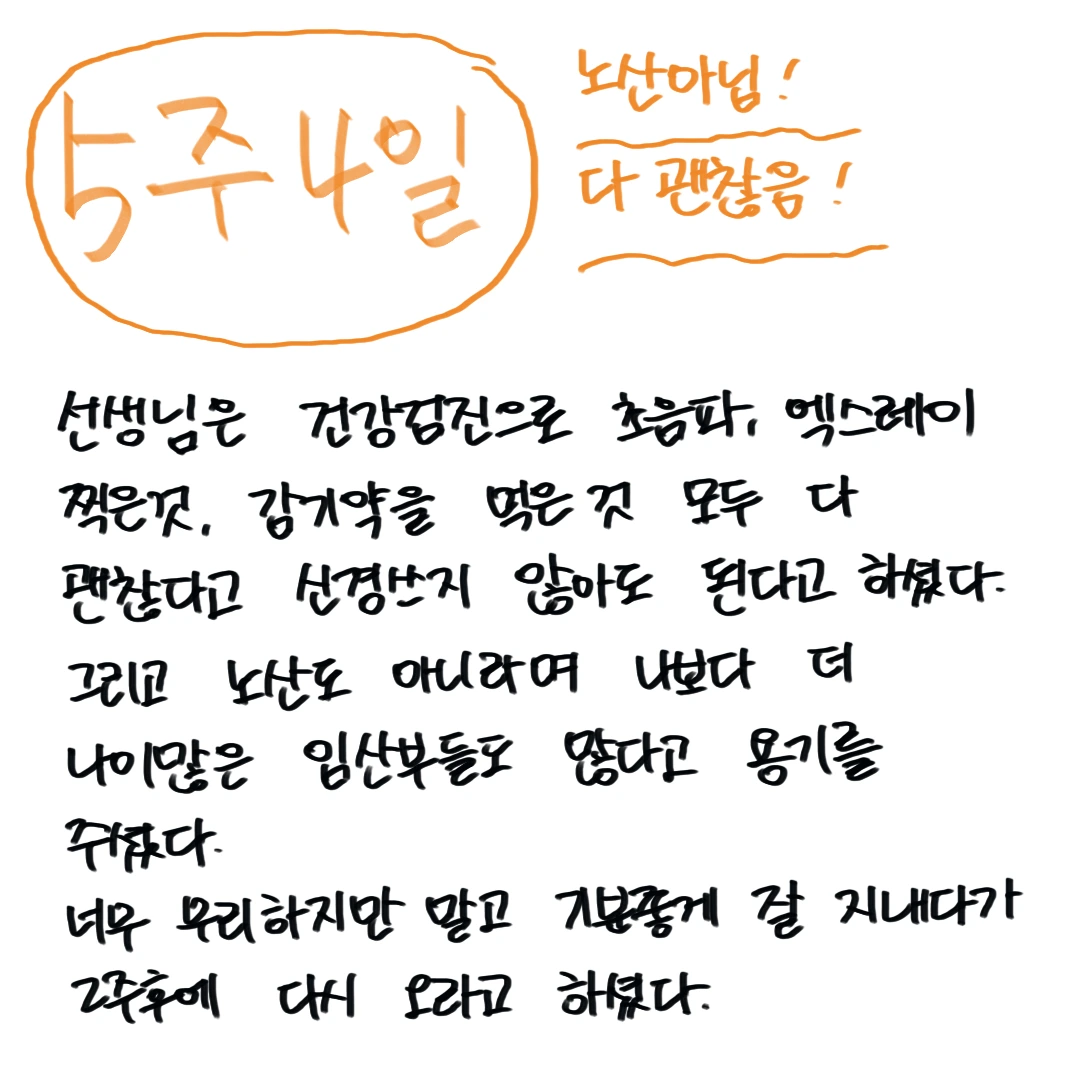 5주4일
노산아님!
다 괜찮음!
선생님은 건강검진으로 초음파, 엑스레이
찍은것, 감기약을 먹은것 모두 다
괜찮다고 신경쓰지 않아도 된다고 하셨다.
그리고 노산도 아니라며 나보다 더
나이많은 임산부들도 많다고 용기를
주셨다.
너무 무리하지만 말고 기분좋게 잘 지내다가
2주후에 다시 오라고 하셨다.